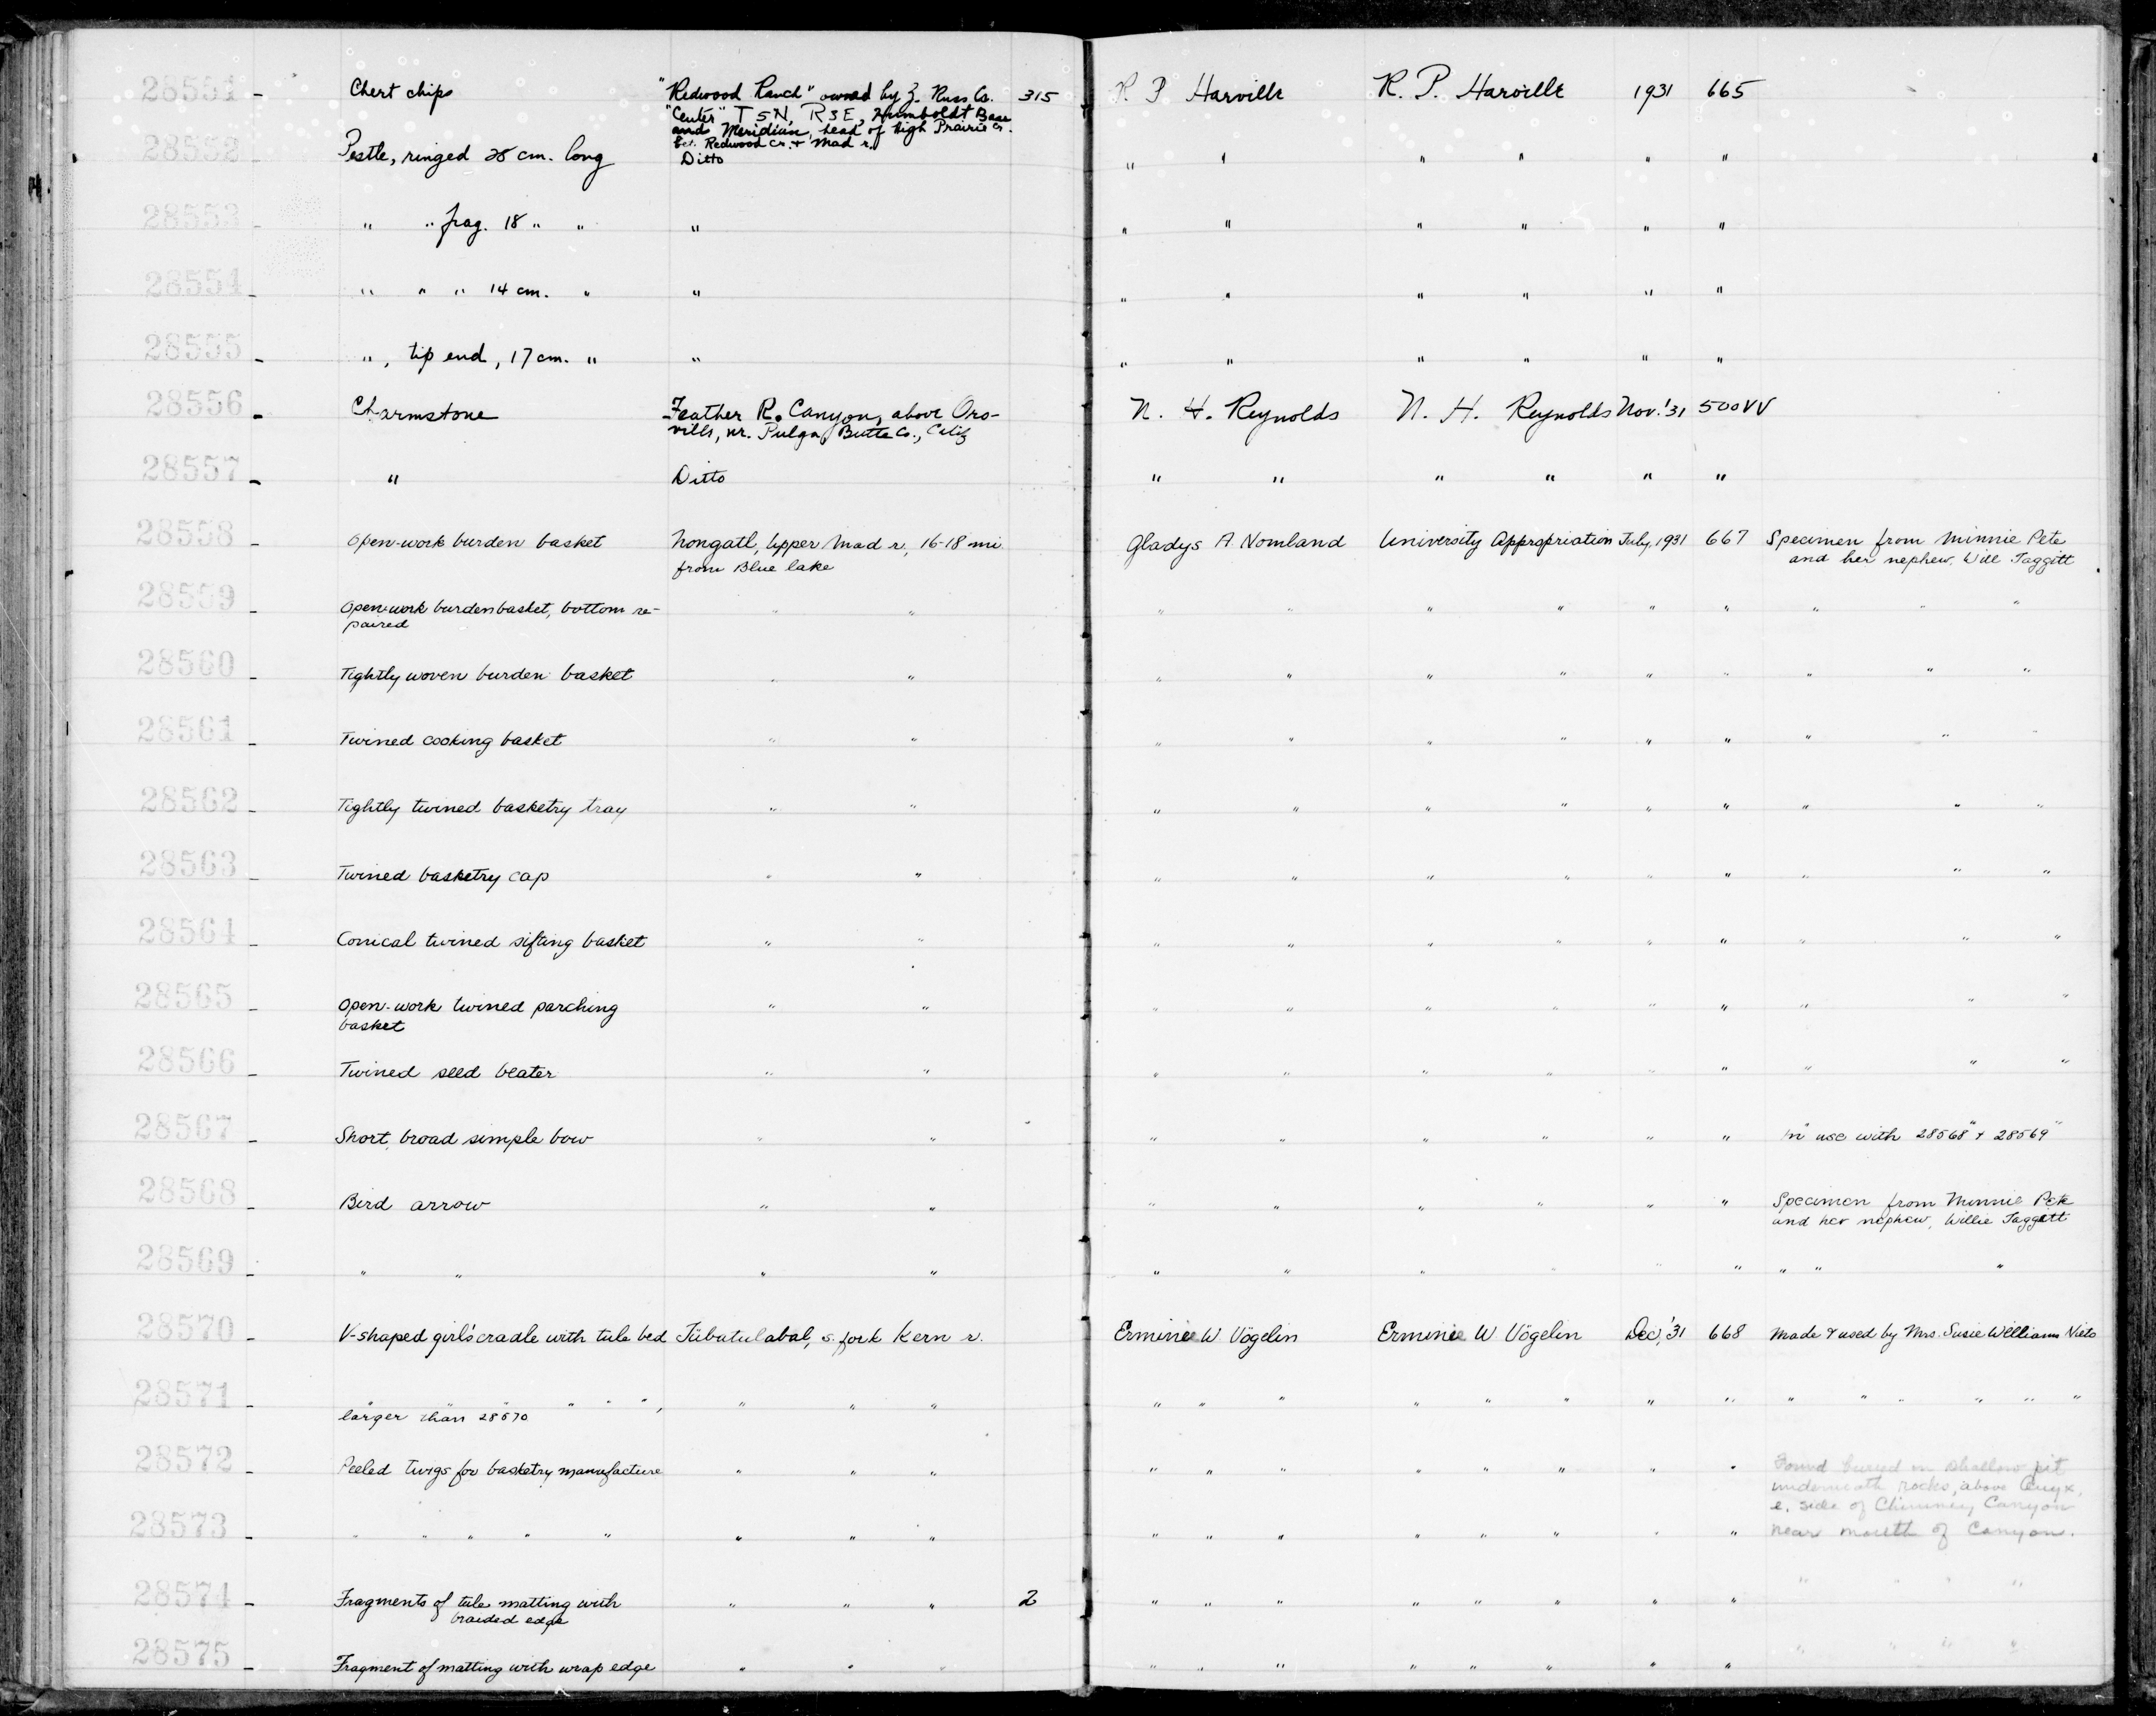 28551 - Chert chips "Redwood Ranch" owned by Z. Russ Co. 315 R. P. Harville R. P. Harville 1931 665
"Center" T 5N, R3E, Humboldt Base
and Meridian, head of high Prairie Cr.
bet. Redwood Cr. + Mad r.
28552 - Pestle, ringed 28 cm. long Ditto " " " " " "
28553 - " " frag. 18 " " " " " " " " "
28554 - " " " 14 cm. " " " " " " " "
28555 - ", tip end, 17 cm. " " " " " " " "
28556 - Charmstone Feather R. Canyon, above Oro- N. H. Reynolds N. H. Reynolds Nov. '31 500VV
ville, nr. Pulga, Butte Co., Calif
28557 - " Ditto " " " " " "
28558 - Open-work burden basket Nongatl, Upper Mad r, 16-18 mi Gladys A. Nomland University Appropriation July, 1931 667 Specimen from Minnie Pete
from Blue lake and her nephew, Will Taggett
28559 - Open-work burden basket, bottom re- " " " " " " " " " " "
paired
28560 - Tightly woven burden basket " " " " " " " " " " "
28561 - Twined cooking basket " " " " " " " " " " "
28562 - Tightly twined basketry tray " " " " " " " " " " "
28563 - Twined basketry cap " " " " " " " " " " "
28564 - Conical twined sifting basket " " " " " " " " " " "
28565 - Open-work twined parching " " " " " " " " " " "
basket
28566 - Twined seed beater " " " " " " " " " " "
28567 - Short, broad simple bow " " " " " " " " " "
In use with 28568 + 28569
28568 - Bird arrow " " " " " " " " Specimen from Minnie Pete
and her nephew, Willie Taggett
28569 - " " " " " " " " " " "
28570 - V-shaped girl's cradle with tule bed Tübatulabal, s. fork Kern r. Erminie W Vögelin Erminie W Vögelin Dec, '31 668 Made & used by Mrs. Susie Williams Nieto
28571 - " " " " ", " " " " " " " " " " " " " " " " "
larger than 28570
28572 - Peeled twigs for basketry manufacture " " " " " " " " " " " Found buried in shallow pit
underneath rocks, above Onyx,
e. side of Chimney Canyon
28573 - " " " " " " " " " " " " " " " " near mouth of Canyon.
28574 - Fragments of tule matting with " " " 2 " " " " " " " " " " "
braided edge
28575 - Fragment of matting with wrap edge " " " " " " " " " " " " " " "